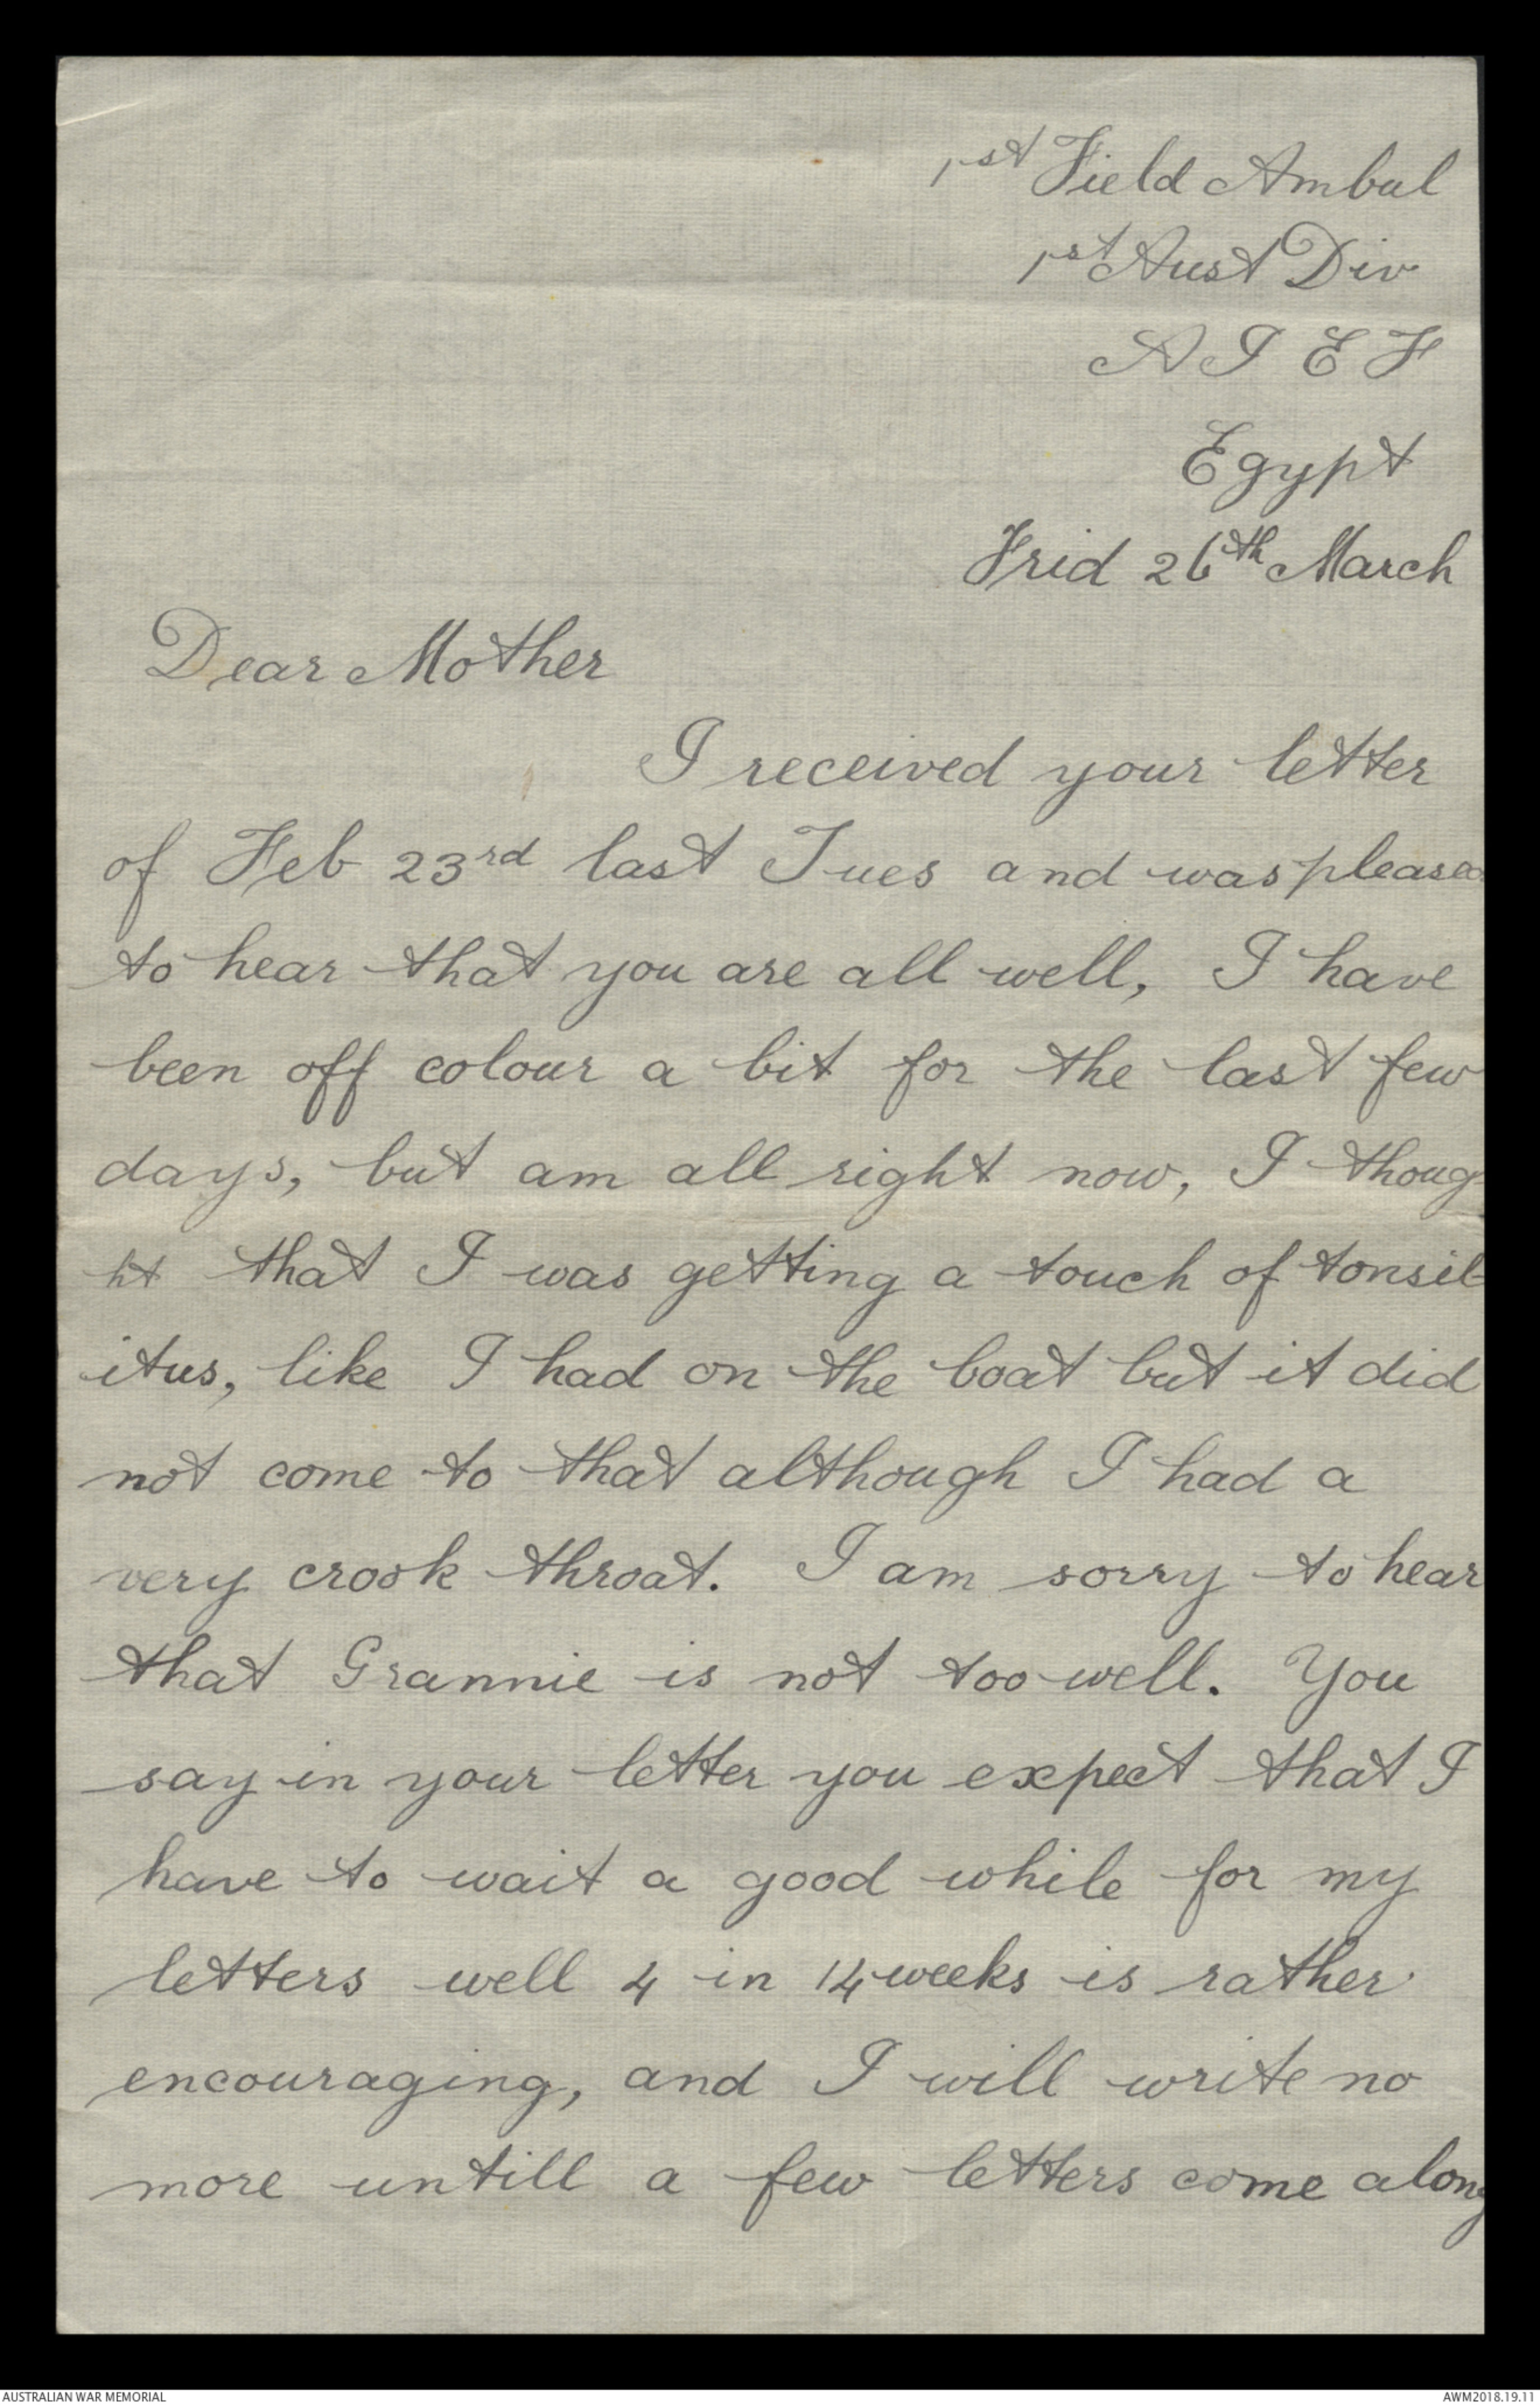 1st Field Ambul
1st Aust Div
A I E F
Egypt
Frid 26th March
Dear Mother
I received your letter
of Feb 23rd last Tues and was pleased
to hear that you are all well, I have
been off colour a bit for the last few
days, but am all right now, I thoug
ht that I was getting a touch of tonsil-
itus, like I had on the boat but it did
not come to that although I had a
very crook throat. I am sorry to hear
that Grannie is not too well. You
say in your letter you expect that I
have to wait a good while for my
letters well 4 in 14 weeks is rather
encouraging, and I will write no
more untill a few letters come along
AUSTRALIAN WAR MEMORIAL
AWM2018.19.11